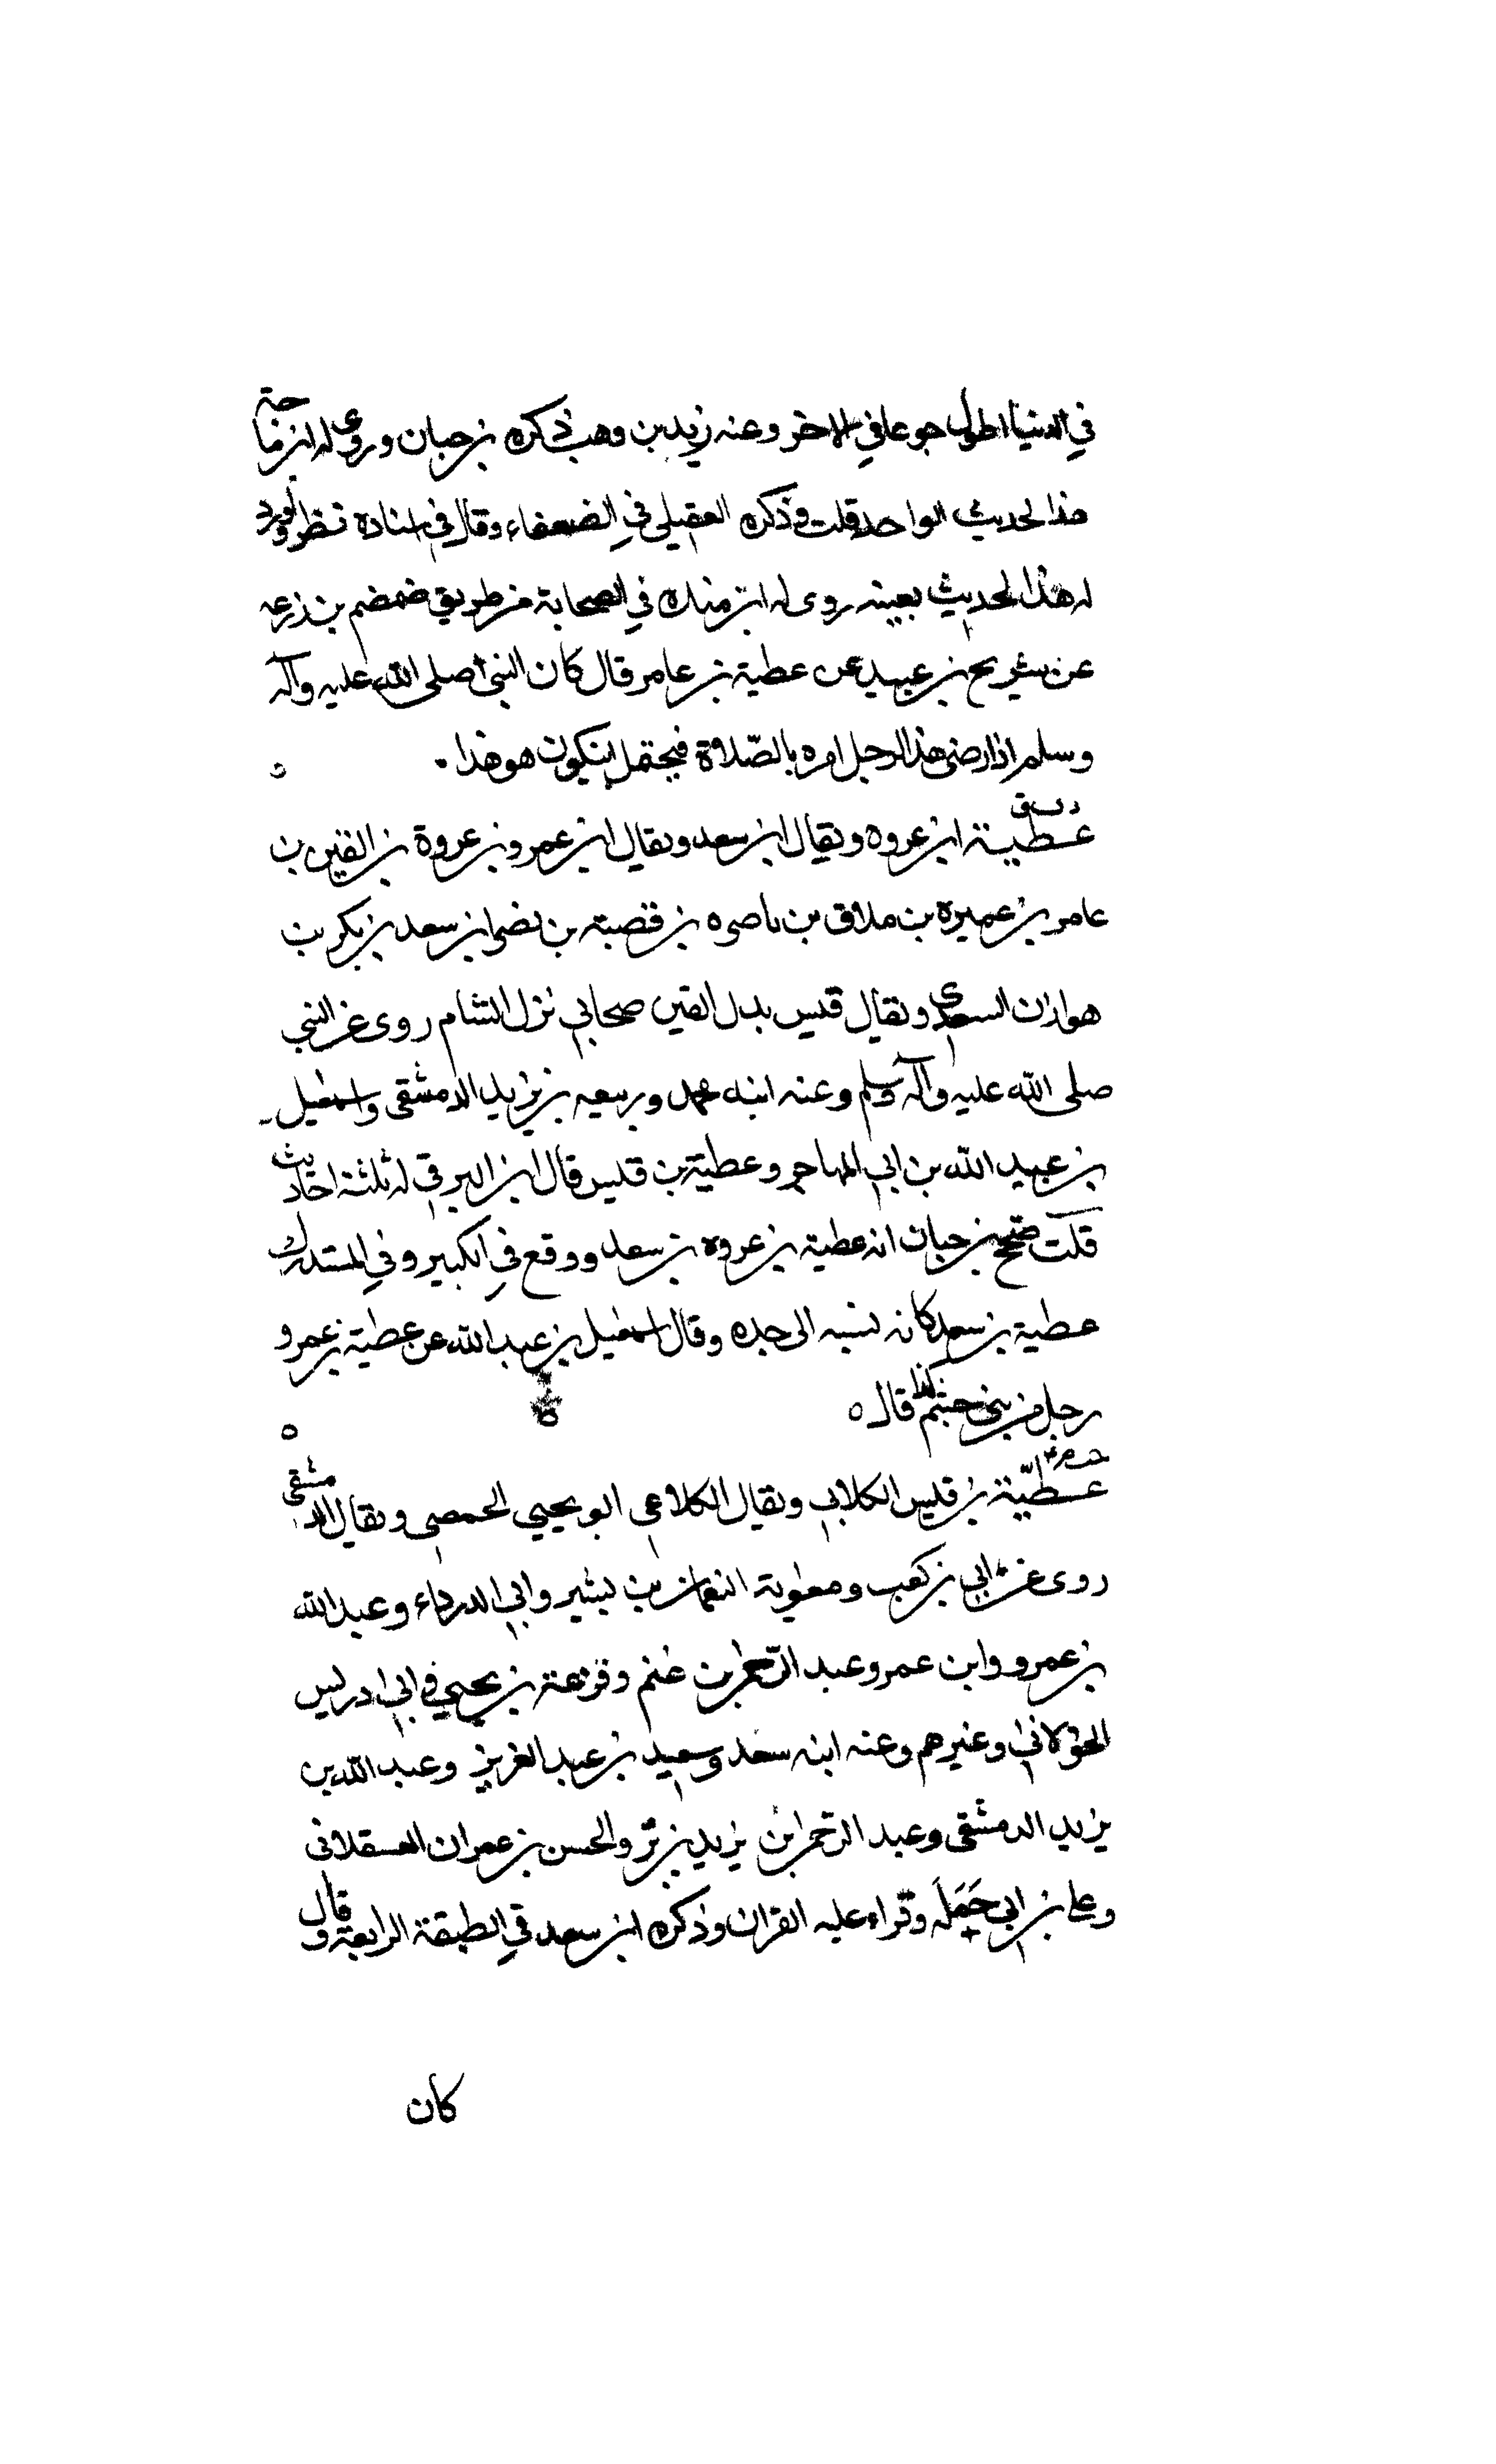 في الدنيا اطول جوعا في الاخر وعنه زيد بن وهب ذكره بن حبان وروى له ابن ماجة
هذا الحديث الواحد قلت وذكره العقيلي في الضعفاء وقال في اسناده نظر واورد
له هذا الحديث بعينه روى له ابن منده في الصحابة من طريق ضمضم بن زرعه
عن شريح بن عبيد عن عطية بن عامر قال كان النبي صلى الله عليه وآله
وسلم اذا رضى هذا الرجل امره بالصّلاة فيحتمل ان يكون هو هذا .
د ت ق
عطية ابن عروه ويقال ابن سعد ويقال ابن عمرو بن عروة بن القين بن
عامر بن عميره بن ملاق بن ناصره بن قصبته بن نصر ابن سعد بن بكر بن
هوازن السعدي ويقال قيس بدل القين صحابي نزل الشام روى عن النبي
صلى الله عليه وآله وسلم وعنه ابنه محمد وربيعه بن يزيد الدمشقى واسمعيل
بن عبيد الله بن ابي المهاجر وعطية بن قيس قال ابن البرقي له ثلثة احاديث
قلت صحح بن حبان انه عطية بن عروه بن سعد ووقع في الكبير وفي المستدرك
عطية بن سعد كانه نسبه الى جده وقال اسمعيل بن عبد الله عن عطية بن عمرو
رجل من بني جشم كذا قال ه
عطيّة بن قيس الكلابي ويقال الكلاعي ابو يحيى الحمصي ويقال الدمشقى
روى عن ابي بن كعب ومعوية النعمان بن بشير وابي الدرداء وعبد الله
بن عمرو وابن عمر وعبد الرّحمن بن غنم وقزعة بن يحيى وابي ادريس
الخولاني وغيرهم وعنه ابنه سعد وسعيد بن عبد العزيز وعبد الله بن
يزيد الدمشقى وعبد الرحمن ابن يزيد بن والحسن بن عمران العسقلاني
وعلي بن ابي حَمَلَه وقراء عليه القران وذكره ابن سعد في الطبقة الرابعة وقال
كان